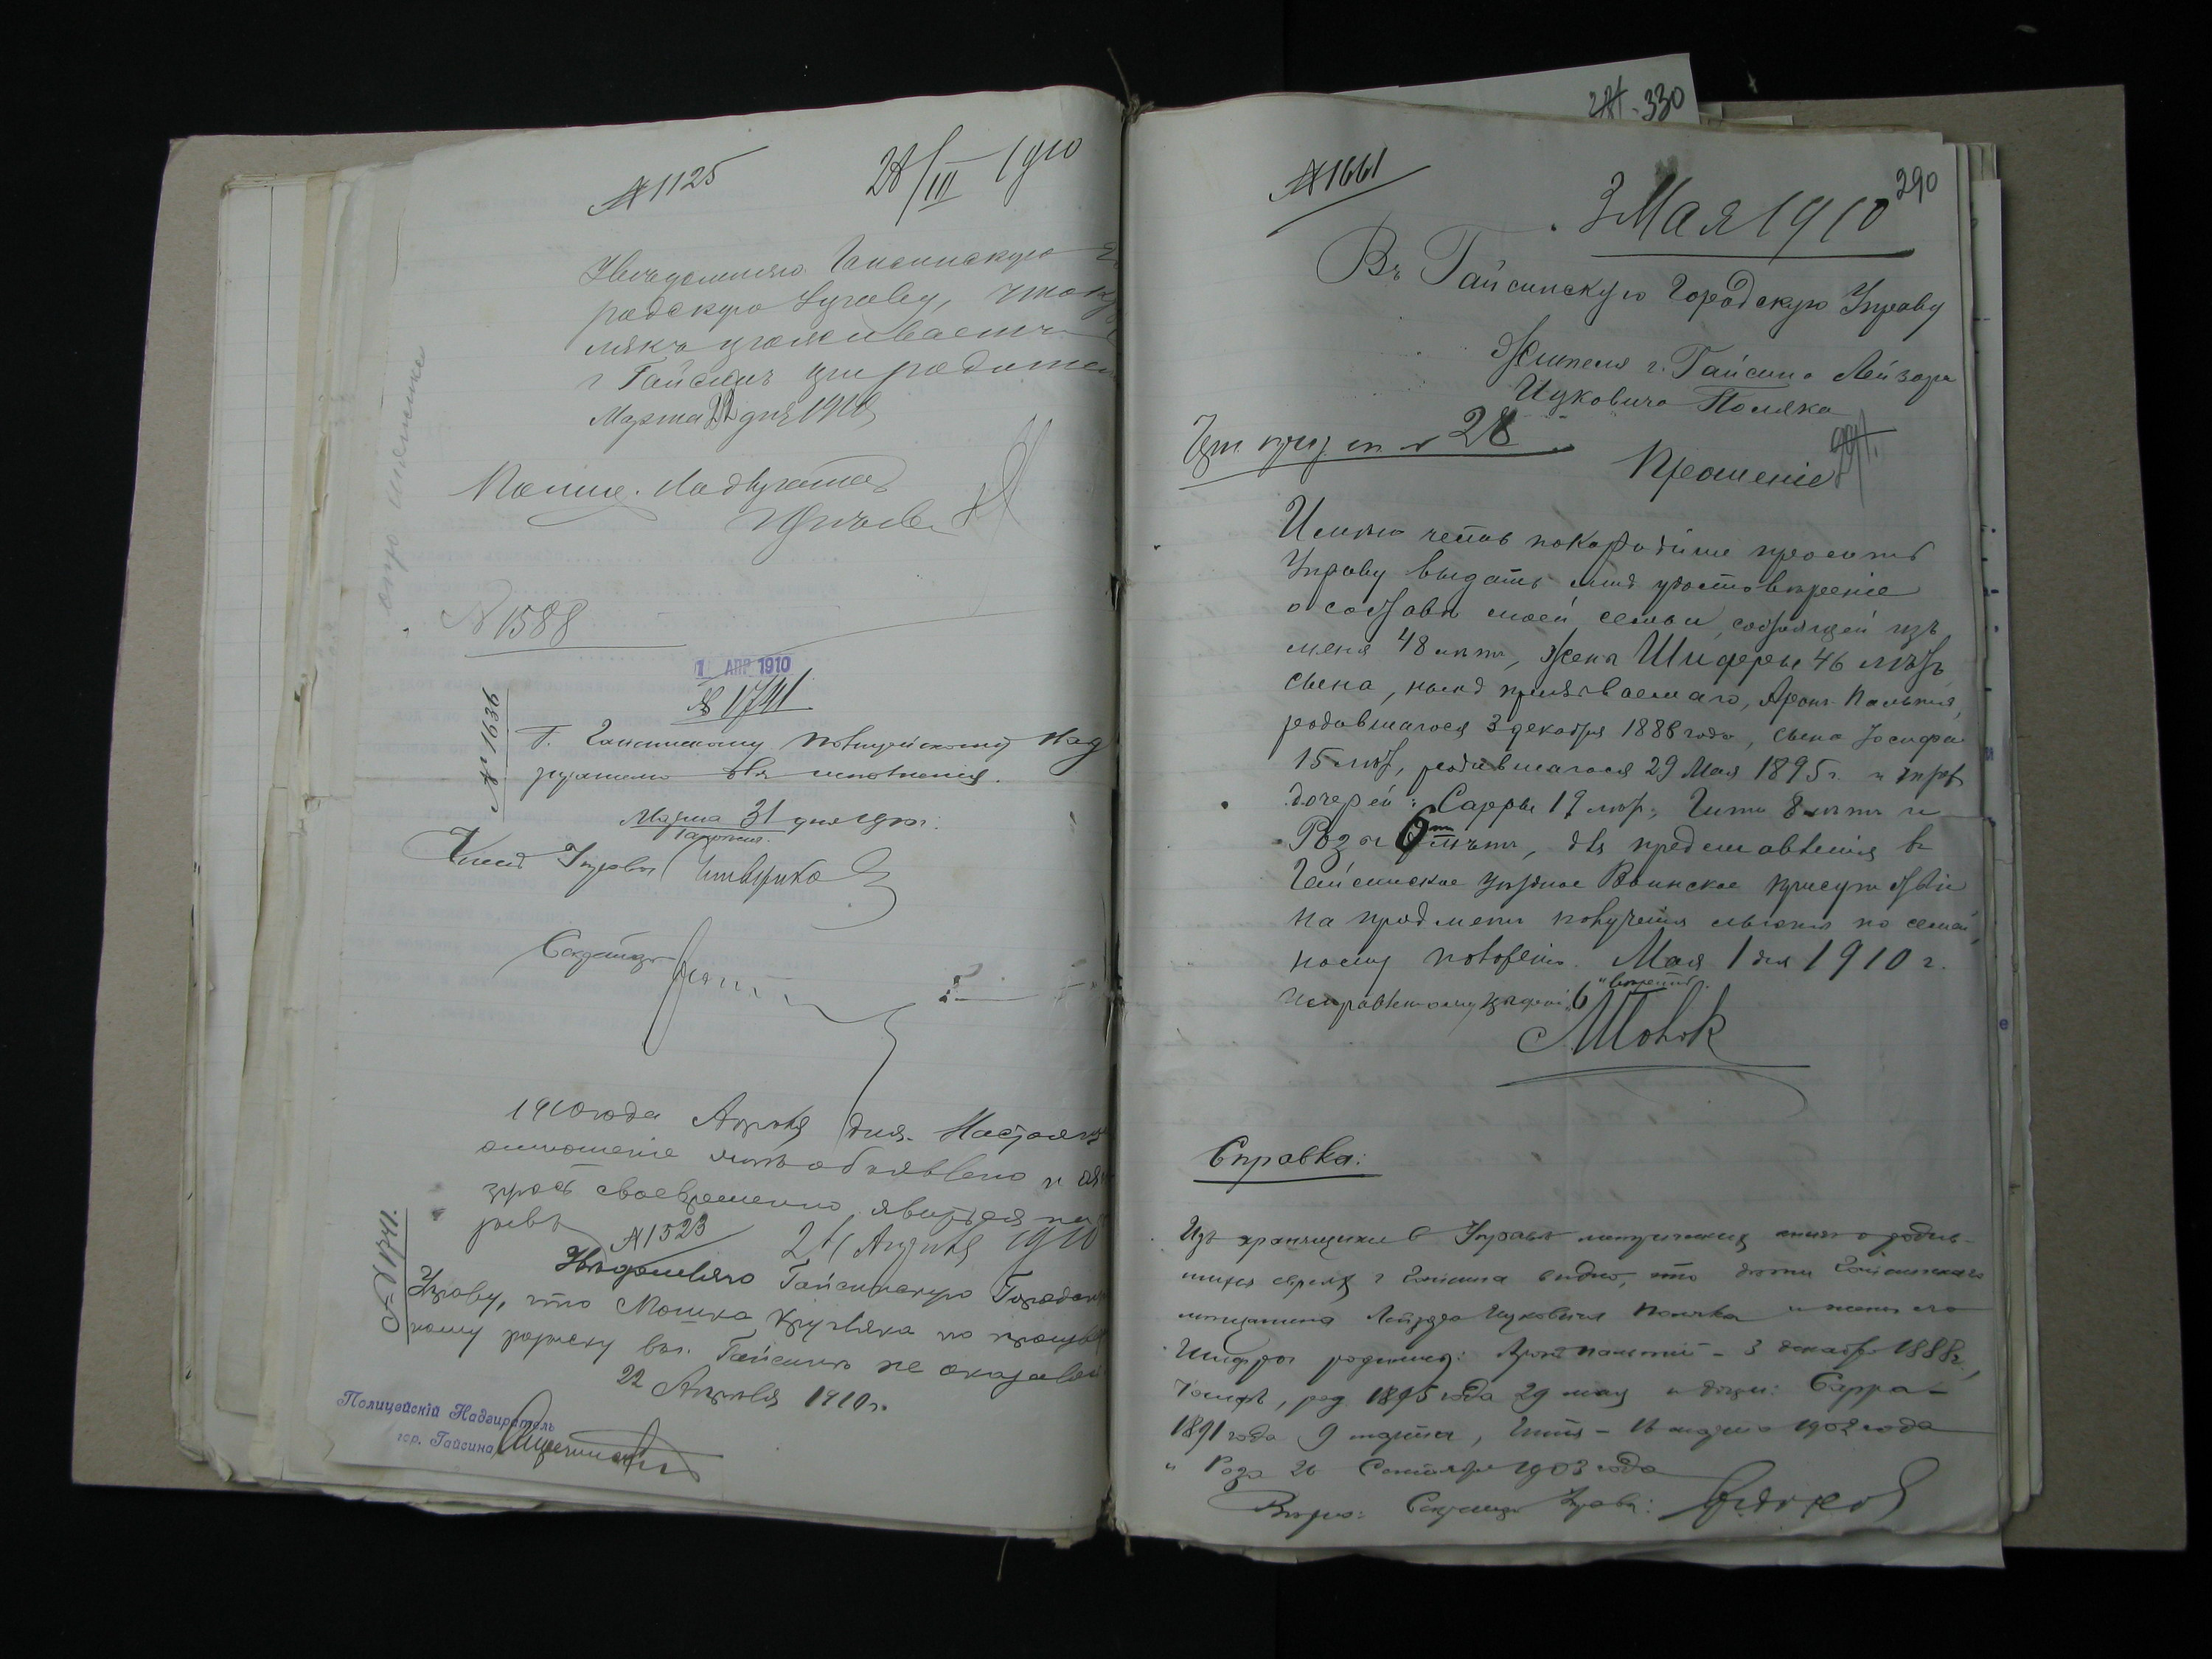 № 1125
28/III 1910
Увѣдомляю Гайсинскую Го
родскую Управу, что
проживаетъ
г Гайсинѣ при родител
Марта 22 дня 1910
Полиц. Надзиратель
№ 1588
1 АПР 1910
№ 1741
№ 1636
Г. Гайсинскому Полицейскому Над
зирателю для исполненія.
Марта 31 дня 1910 г.
Гайсинъ.
Членъ Управы
Секретарь
1910 года Апрѣля дня. Настоящ
отношеніе мнѣ объявлено и обя
зуюсь своевременно явиться
№ 1523
21 Апрѣля 1910
№ 1741.
Увѣдомляю Гайсинскую Городск
Управу, что Мошка Кругляка по произве
ному розыску въ г. Гайсинѣ не оказалось
22 Апрѣля 1910 г.
Полицейскій Надзиратель
гор. Гайсина
281-330
№ 1661
290
3 Мая 1910
Въ Гайсинскую Городскую Управу
Жителя г. Гайсина Лейзора
Ицковича Поляка
28
291.
Прошеніе
Имѣю честь покорнѣйше просить
Управу выдать мнѣ удостовѣреніе
о составѣ моей семьи, состоящей изъ
меня 48 лѣтъ, жены Шифры 46 лѣтъ,
сына, нынѣ призываемаго, Аронъ-Пальтія,
родившагося 3 декабря 1888 года, сына Іосифа
15 лѣт, родившагося 29 Мая 1895 г. и трехъ
дочерей: Сарры 19 лѣт, Гити 8 лѣтъ и
Розы 6ти лѣтъ, для представленія въ
Гайсинское уѣздное Воинское присутствіе
на предметъ полученія льготы по семей,
ному положенію. Мая 1 дня 1910 г.
Исправленному цифрой „6“ вѣрить.
Справка:
Изъ хранящихся в Управѣ метрическихъ книгъ о родив-
шихся евреяхъ г Гайсина видно, что дѣти Гайсинскаго
мѣщанина Лейзора Ицковича Поляка и жены его
Шифры родились: Аронъ Пальтій - 3 декабря 1888 г,
Іосифъ, род. 1895 года 29 мая и дочери: Сарра -
1891 года 9 марта, Гитя - 16 марта 1902 года
и Роза 26 Сентября 1903 года
Вѣрно: Секретарь Управы: